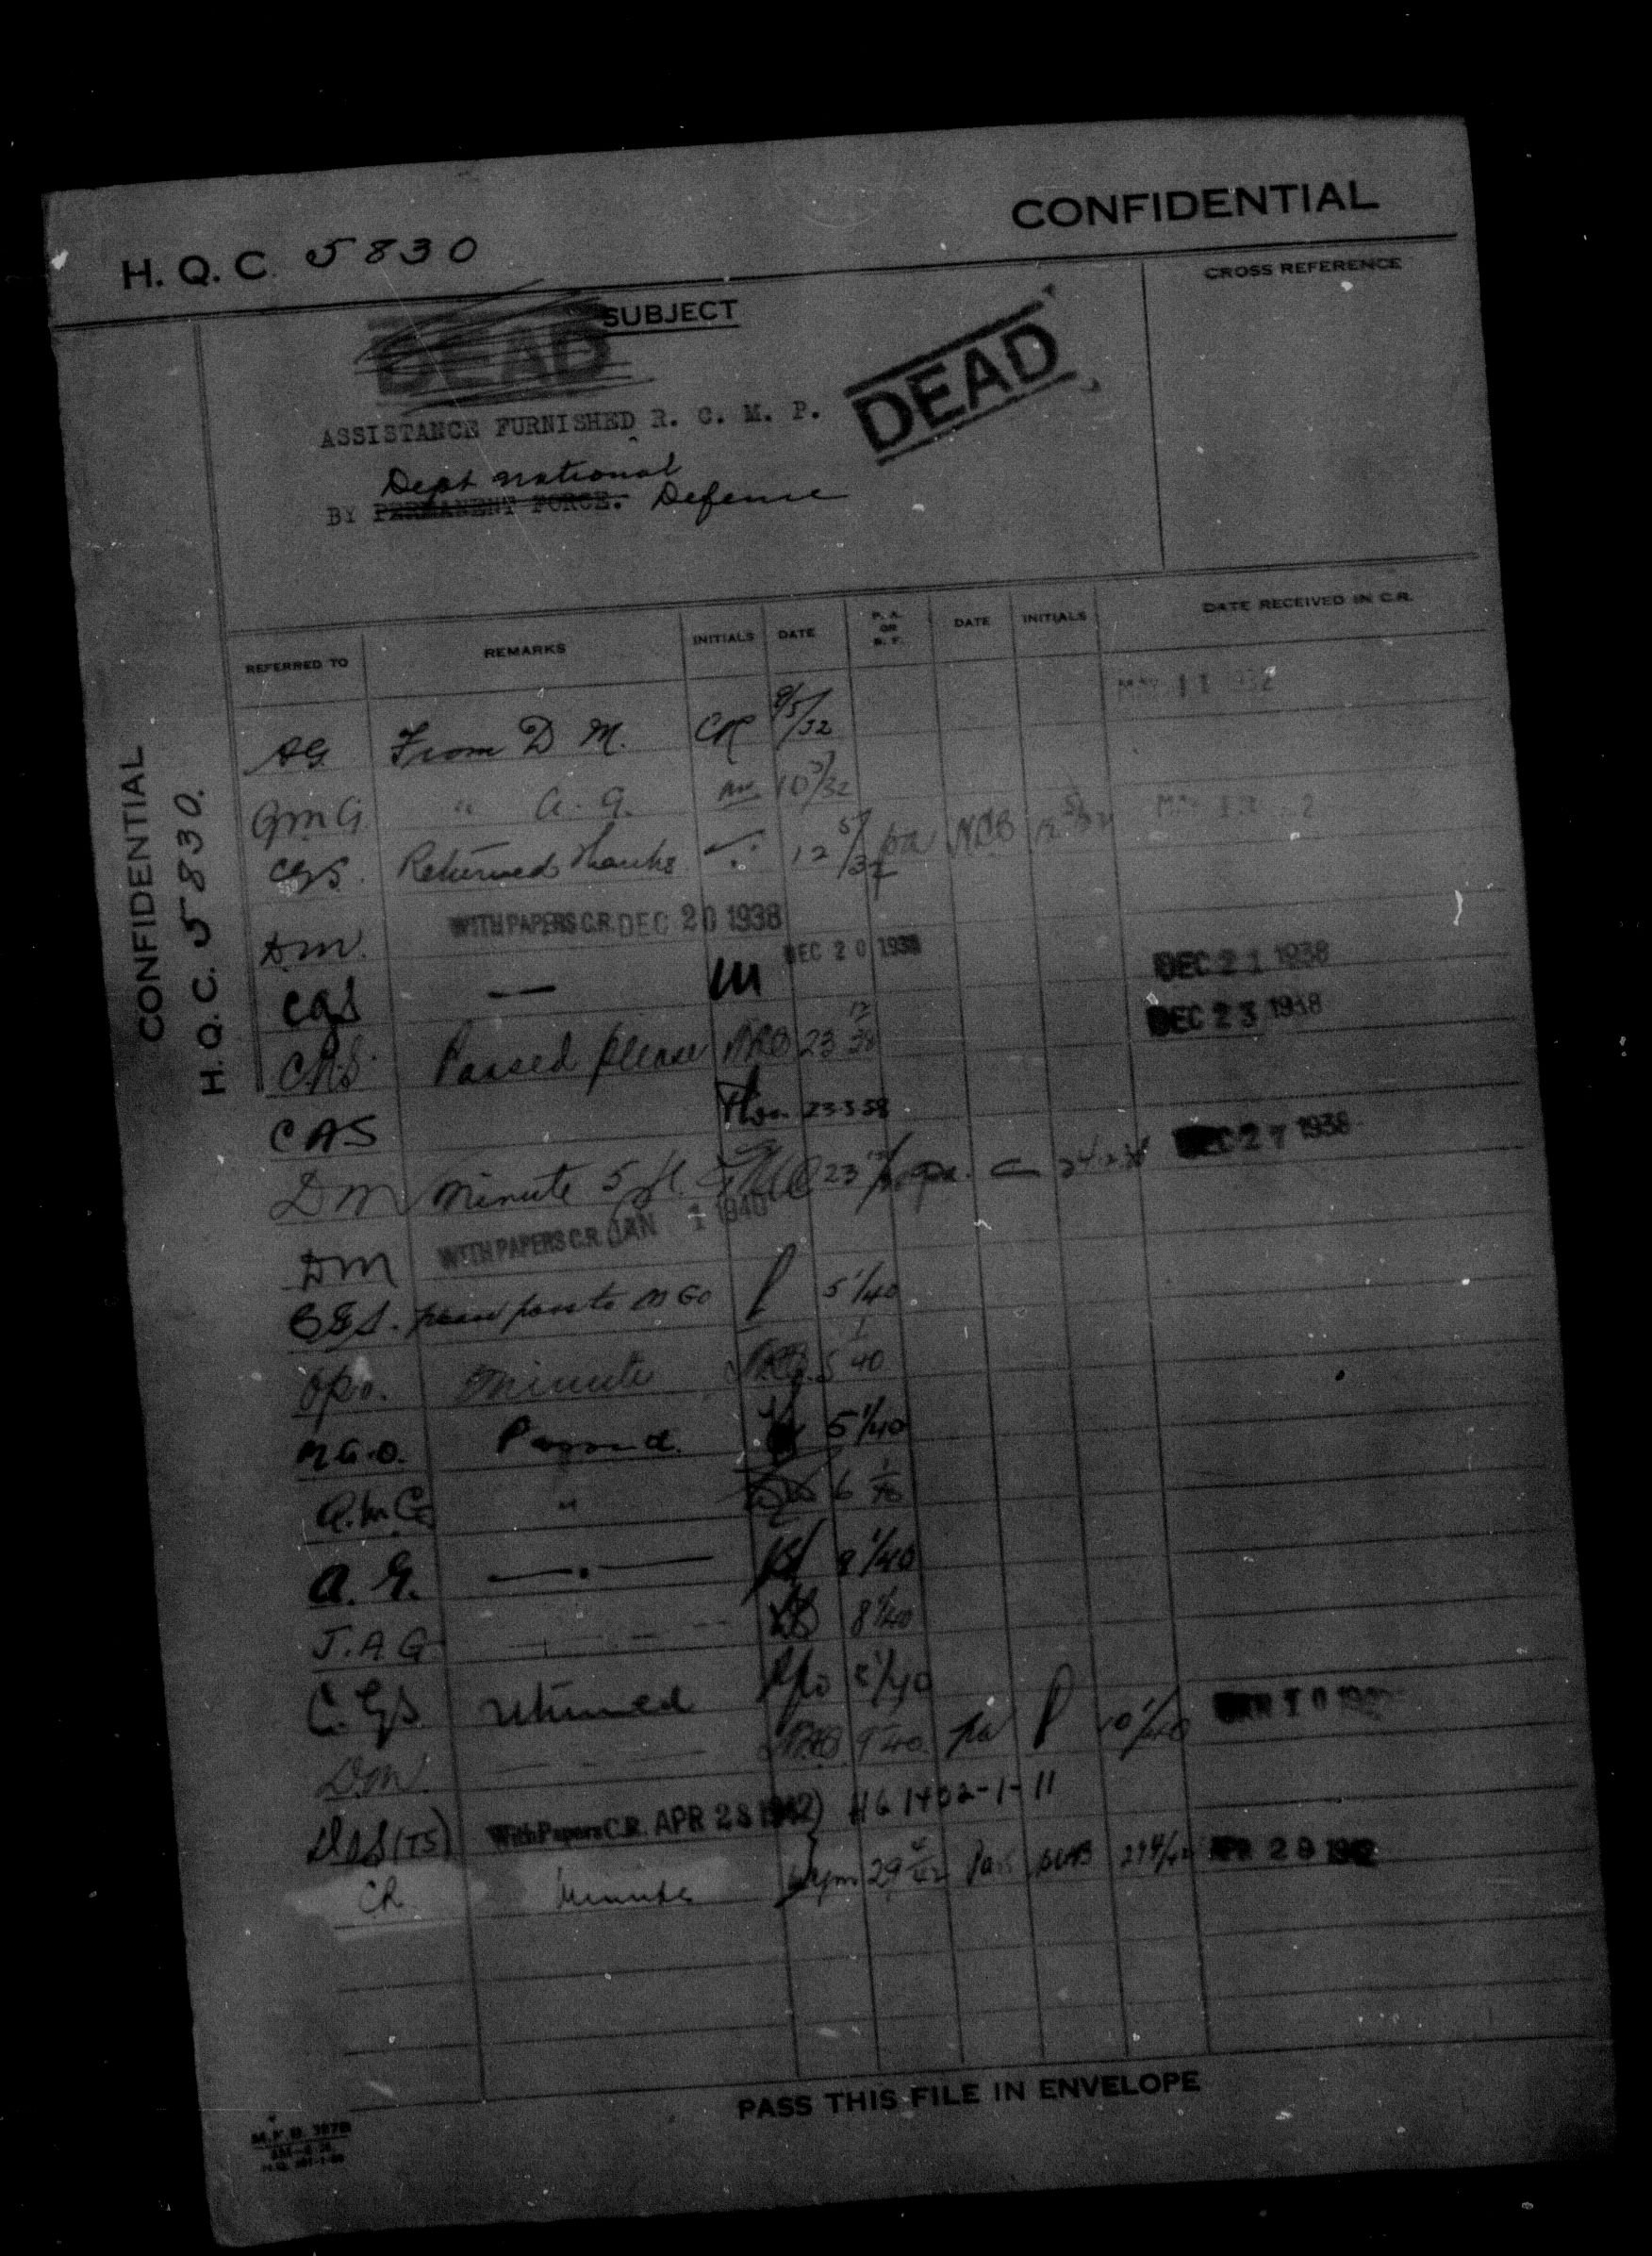 CONFIDENTIAL
H. Q. C. 5830
CROSS REFERENCE
SUBJECT
DEAD
DEAD
ASSISTANCE FURNISHED R. C. M. P.
Dept National
BY PERMANENT FORCE. Defense
CONFIDENTIAL
H. Q. C. 5830.
REFERRED TO REMARKS INITIALS DATE P. A. OR B. F. DATE INITIALS DATE RECEIVED IN C.R.
MAY 11 1932
AG From D M. CR 9/5/32
QMG " A. G. 10 5/32
CGS. Returned thanks 12 5/32 pa NCB 12 5/32
DM. WITH PAPERS C.R. DEC 20 1938
CGS — DEC 20 1938 DEC 21 1938
C.A.S. Passed please 23 12 38 DEC 23 1938
CAS
DM Minute 5 23 pa. DEC 27 1938
DM WITH PAPERS C.R. JAN 1 1940
CGS. please pass to MGO 5 1/40
Opo. Minute 5 1 40
M.G.O. Passed. 5 1/40
Q.M.G. " 6 1/40
A. G. —.— 8 1/40
J.A.G 8 1/40
C.G.S returned 8 1/40
D.M. 9 1 40 pa P 10 1/40 JAN 10 1940
(TS) With Papers C.R. APR 28 1942) HQ 1402-1-11
CR Minute 29 4/42 Pa 29 4/42 APR 29 1942
PASS THIS FILE IN ENVELOPE